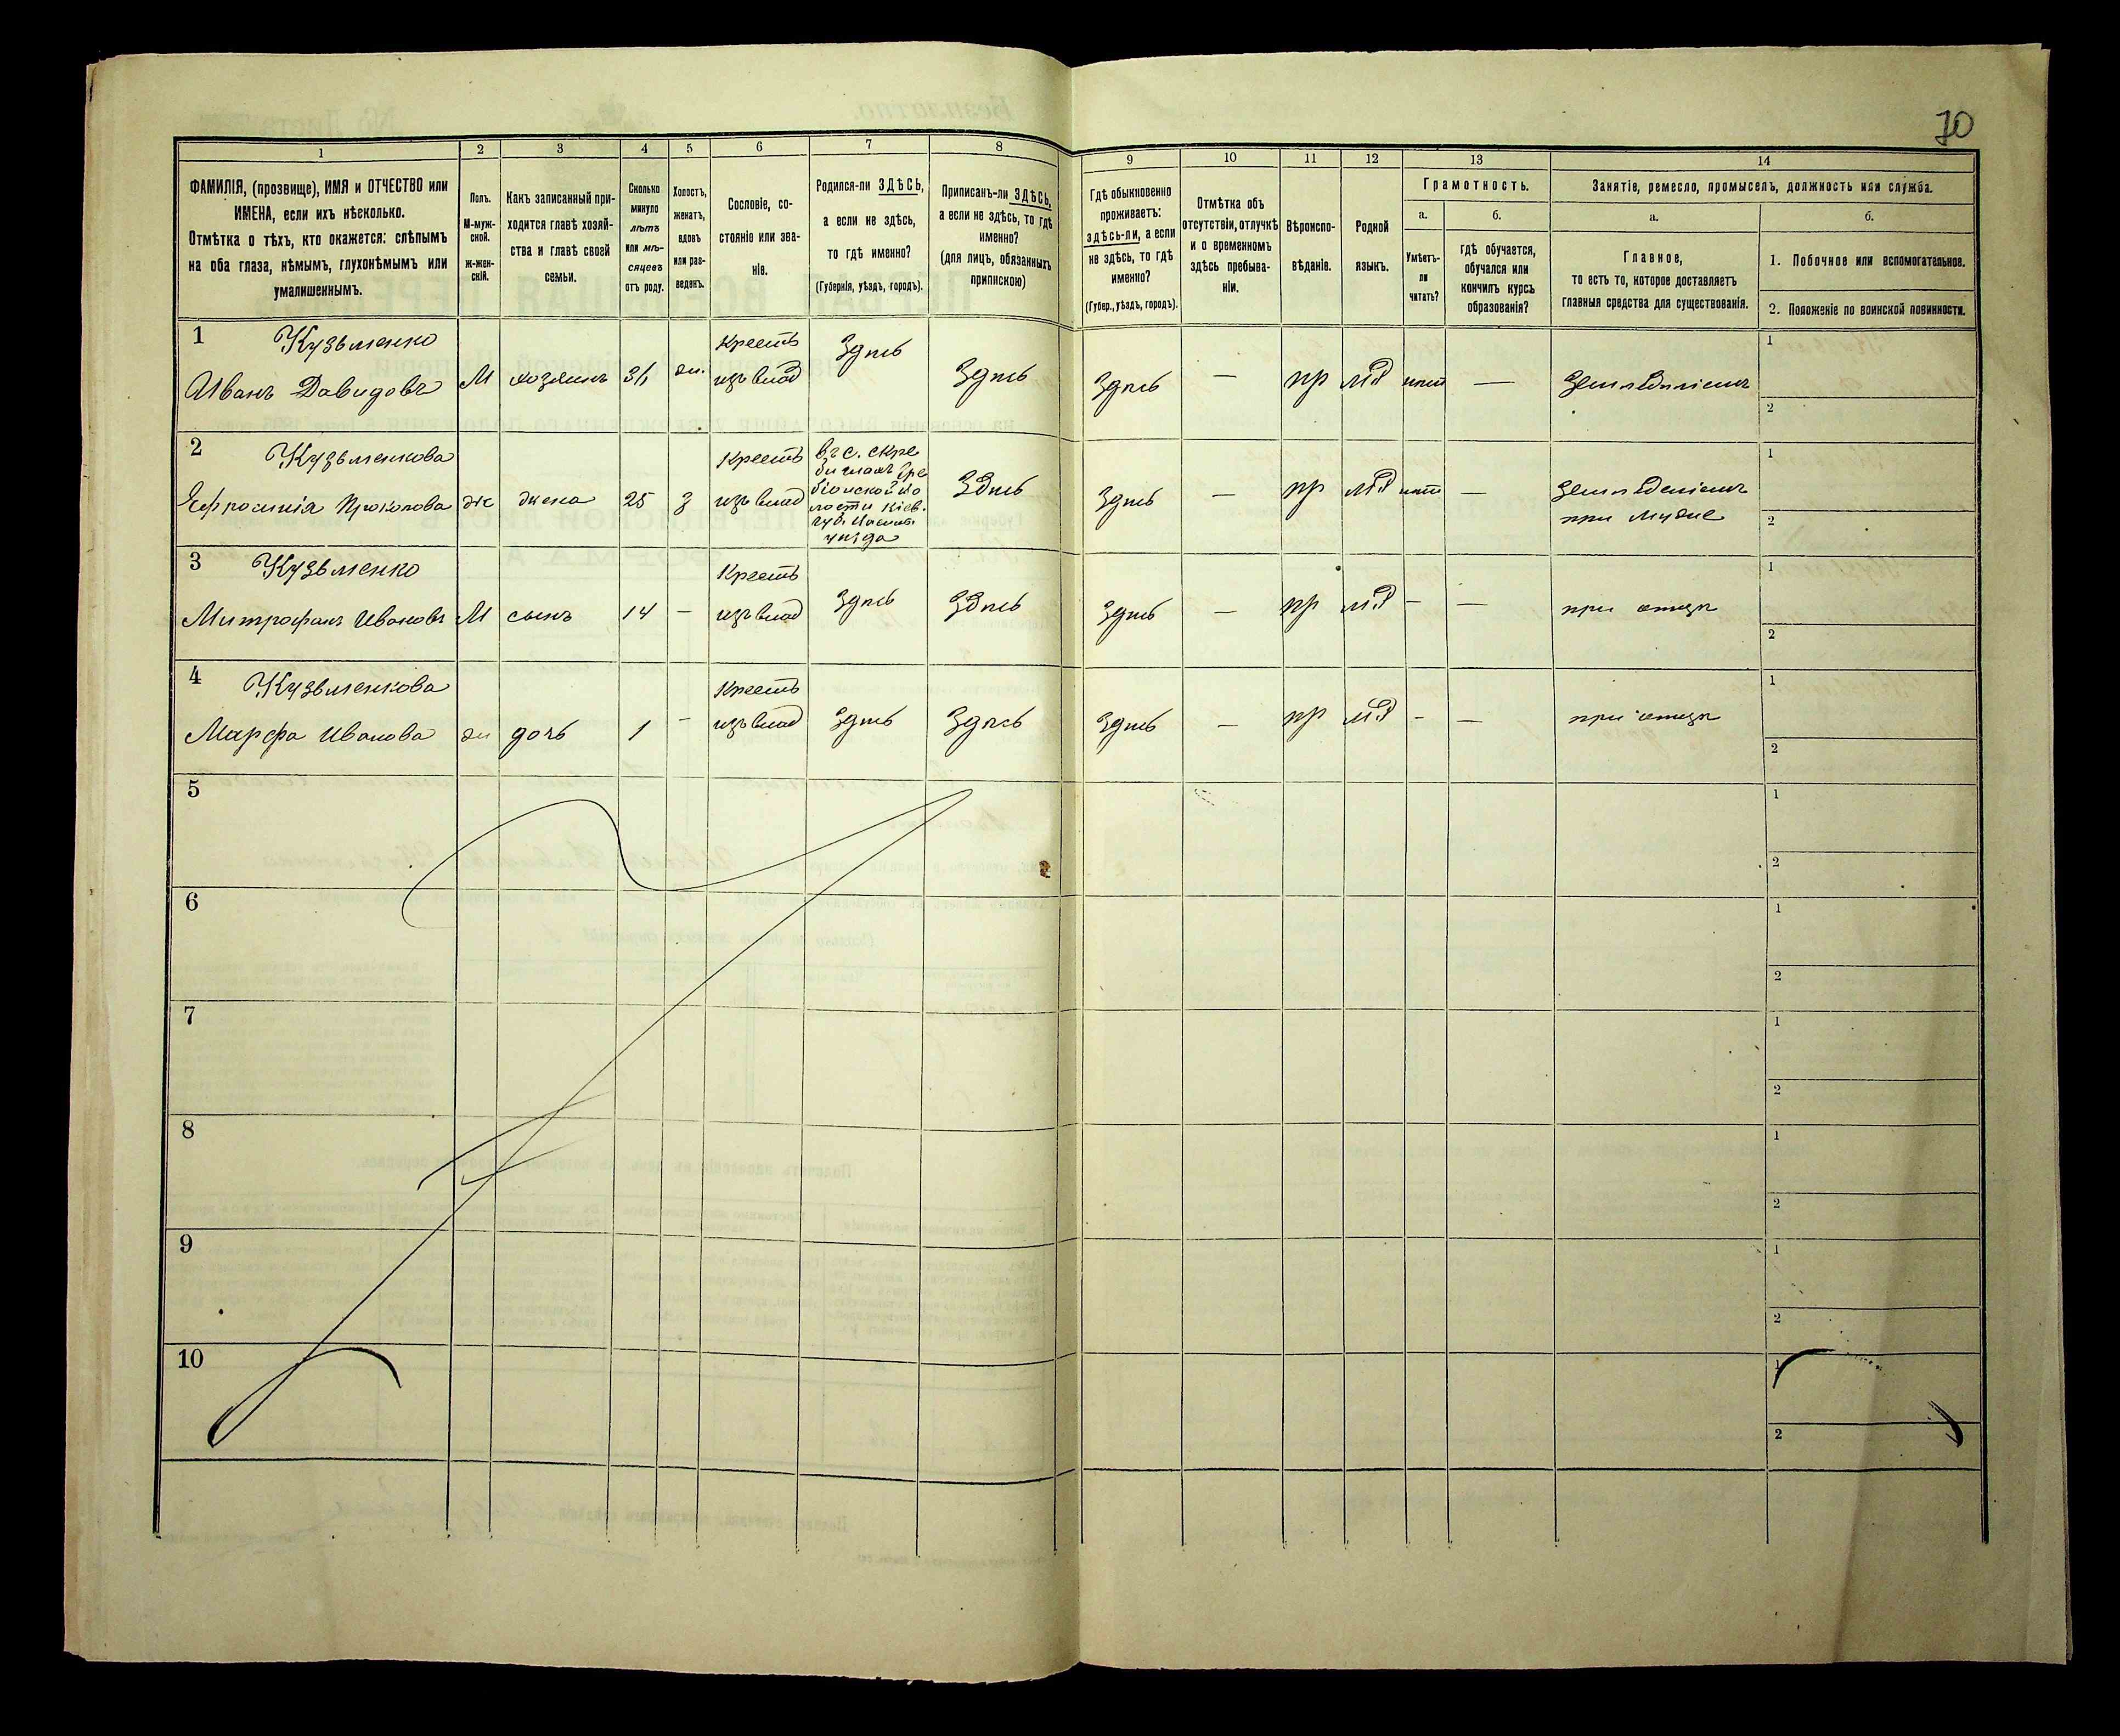 70
1
2
3
4
5
6
7
8
9
10
11
12
13
14
ФАМИЛІЯ, (прозвище), ИМЯ и ОТЧЕСТВО или
ИМЕНА, если ихъ нѣсколько.
Отмѣтка о тѣхъ, кто окажется: слѣпымъ
на оба глаза, нѣмымъ, глухонѣмымъ или
умалишеннымъ.
Полъ.
М-муж-
ской.
ж-жен-
скій.
Какъ записанный при-
ходится главѣ хозяй-
ства и главѣ своей
семьи.
Сколько
минуло
лѣтъ
или мѣ-
сяцевъ
отъ роду.
Холостъ,
женатъ,
вдовъ
или раз-
веденъ.
Сословіе, со-
стояніе или зва-
ніе.
Родился-ли ЗДѢСЬ,
а если не здѣсь,
то гдѣ именно?
(Губернія, уѣздъ, городъ).
Приписанъ-ли ЗДѢСЬ,
а если не здѣсь, то гдѣ
именно?
(для лицъ, обязанныхъ
припискою)
Гдѣ обыкновенно
проживаетъ:
здѣсь-ли, а если
не здѣсь, то гдѣ
именно?
(Губер., уѣздъ, городъ).
Отмѣтка объ
отсутствіи, отлучкѣ
и о временномъ
здѣсь пребыва-
ніи.
Вѣроиспо-
вѣданіе.
Родной
языкъ.
Грамотность.
а.
Умѣетъ-
ли
читать?
б.
гдѣ обучается,
обучался или
кончилъ курсъ
образованія?
Занятіе, ремесло, промыселъ, должность или служба.
а.
Главное,
то есть то, которое доставляетъ
главныя средства для существованія.
б.
1. Побочное или вспомогательное.
2. Положеніе по воинской повинности.
1 Кузьменко
Иванъ Давидовъ
М
хозяинъ
ж.
Крест
изъ влад
Здѣсь
Здѣсь
Здѣсь
—
пр
мд
нѣт
—
Земледѣліемъ
1
2
2 Кузьменкова
Ефросинія Прокопова
ж
жена
25
з
Крест
изъ влад
въ с.
волости Кіев.
губ.
уѣзда
Здѣсь
Здѣсь
—
пр
мд
нѣт
—
Земледеліемъ
при мужѣ
1
2
3 Кузьменко
Митрофанъ Ивановъ
М
сынъ
14
—
Крест
изъ влад
Здѣсь
Здѣсь
Здѣсь
—
пр
мд
—
—
при отцѣ
1
2
4 Кузьменкова
Марфа Иванова
ж
дочь
1
—
Крест
изъ влад
Здѣсь
Здѣсь
Здѣсь
—
пр
мд
—
—
при отцѣ
1
2
5
1
2
6
1
2
7
1
2
8
1
2
9
1
2
10
1
2